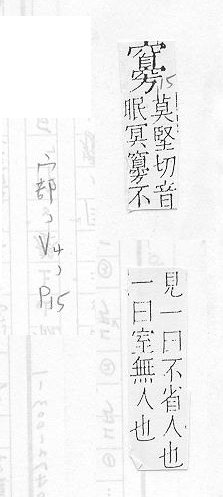 㝰
15
莫堅切音
眠冥㝰不
見一曰不省人也
一曰室無人也
宀部、V4、P15